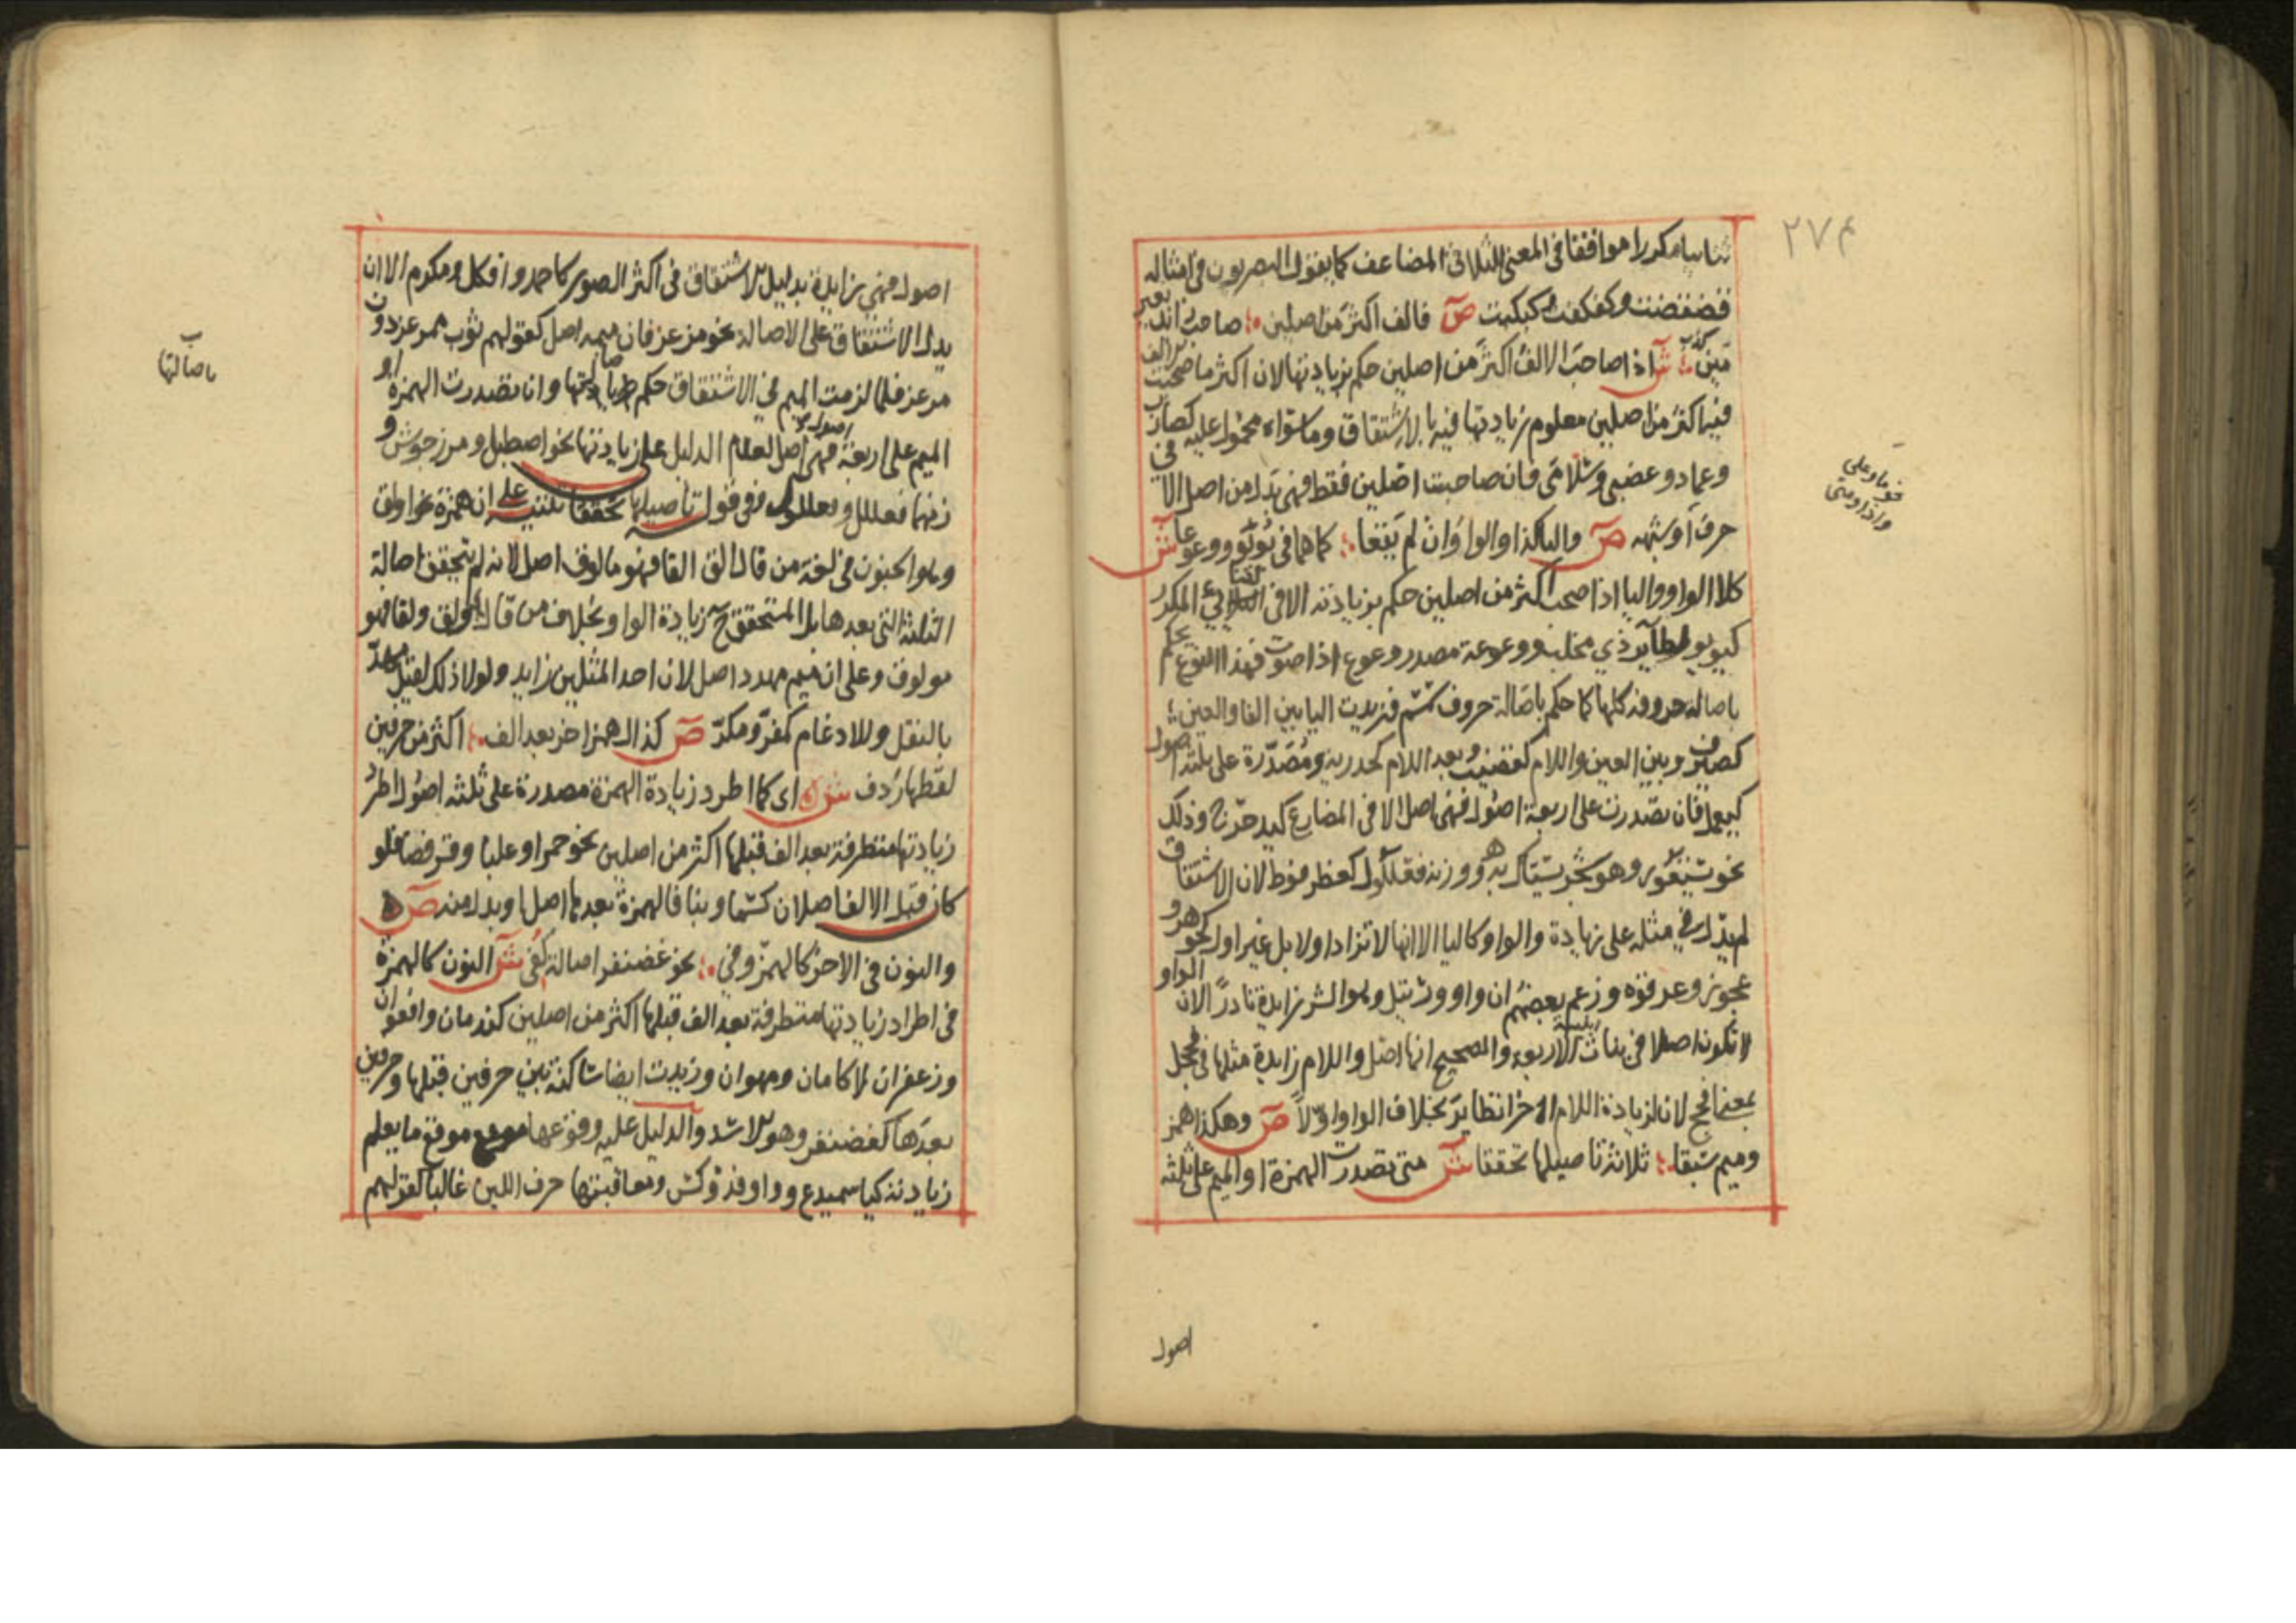 ٢٧٤
ثنائيا مكررا موافقا فى المعنى للثلاثى المضاعف كما يقول البصريون فى امثاله
فضفضت وكفكفت وكبكبت ص فالف اكثر من اصلين ؞ صاحب زائد بغير
مين ؞ ش اذا صاحب الالف اكثر من اصلين حكم بزيادتها لان اكثر ما صحبت الالف
فيه اكثر من اصلين معلوم زيادتها فيه بالاشتقاق وما سواه محمول عليه كضارب
وعماد وغضبى وسلامى فان صاحبت اصلين فقط فهى بدل من اصل الا فى
حرف او شبهه ص واليا كذا والواو ان لم يقعا ؞ كما هما فى يؤيؤ ووعوعا ش
كلا الواو واليا اذا صحب اكثر من اصلين حكم بزيادته الا فى الثنائي المكرر
كيويو لطاير ذي مخلب ووعوعة مصدر وعوع اذا صوت فهذا النوع يحكم
باصالة حروفه كلها كما حكم باصالة حروف سمسم فزيدت اليا بين الفا والعين ؞
كصيرف وبين العين واللام كقضيب وبعد اللام كحدرية ومصدرة على ثلثة اصول
كيعمل فان تصدرت على اربعة اصول فهى اصل الا فى المضارع كيدحرج وذلك
نحو يستعور وهو شجر يستاك به ووزنه فعللول كعضرفوط لان الاشتقاق
لم يدل في مثله على زيادة والواو كاليا الا انها لا تزاد اولا بل غير اول كجوهر و
عجوز وعرقوه وزعم بعضهم ان واو ورنتل وهو الشر زايدة نادرا لان الواو
لا تكون اصلا فى بنات الاربعة والصحيح انها اصل واللام زايدة مثلها فى فحجل
بمعنى افحج لان لزيادة اللام اخرا نظاير بخلاف الواو اولا ص وهكذا همز
وميم سبقا ؞ ثلاثة تاصيلها تحققا ش متى تصدرت الهمزة او الميم على ثلثة
اصول
نحو ما وعلى
واذا ومتى
اصول فهى زايدة بدليل الاشتقاق فى اكثر الصور كاحمد وافكل ومكرم الا ان
يدل الاشتقاق على الاصالة نحو مرعز فان ميمه اصل كقولهم ثوب ممرعز دون
مرعز فلما لزمت الميم في الاشتقاق حكم باصالتها وان تصدرت الهمزة او
الميم على اربعة اصول فهى اصل لعدم الدليل على زيادتها نحو اصطبل ومرزجوش و
زنهما فعلل وفعللول وفى قوله تاصيلها تحققا تنبيه على ان همزة نحو اولق
وهو الجنون فى لغة من قال الق القا فهو مالوق اصل لانه لم يتحقق اصالة
الثلثة التى بعدها بل المتحقق زيادة الواو بخلاف من قال ولق ولقا فهو
مولوق وعلى ان ميم مهدد اصل لان احد المثلين زايد ولولا ذلك لقيل مهدّ
بالنقل والادغام كمفرّ ومكرّ ص كذاك همز اخر بعد الف ؞ اكثر من حرفين
لفظها ردف ش اى كما اطرد زيادة الهمزة مصدرة على ثلثه اصول اطرد
زيادتها متطرفة بعد الف قبلها اكثر من اصلين نحو حمرا وعلبا وقرفصا فلو
كان قبل الالف اصلان كسما وبنا فالهمزة بعدها اصل او بدل منه ص
والنون فى الاخر كالهمز وفي ؞ نحو غضنفر اصالة كفى ش النون كالهمزة
فى اطراد زيادتها متطرفة بعد الف قبلها اكثر من اصلين كندمان وافعوان
وزعفران لا كامان ومهوان وزيدت ايضا ساكنة بين حرفين قبلها وحرفين
بعدها كغضنفر وهو الاسد والدليل عليه وقوعها موقع ما يعلم
زيادته كيا سميدع وواو فدوكس ومعاقبتها حرف اللين غالبا كقولهم
باصالتها